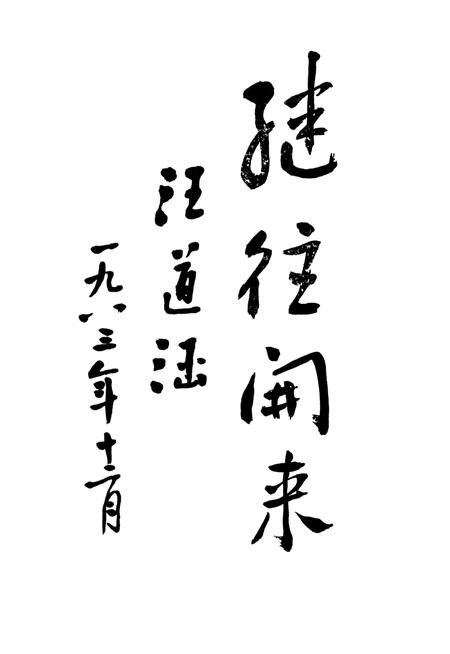 继往開来
汪道涵
一九八三年十二月